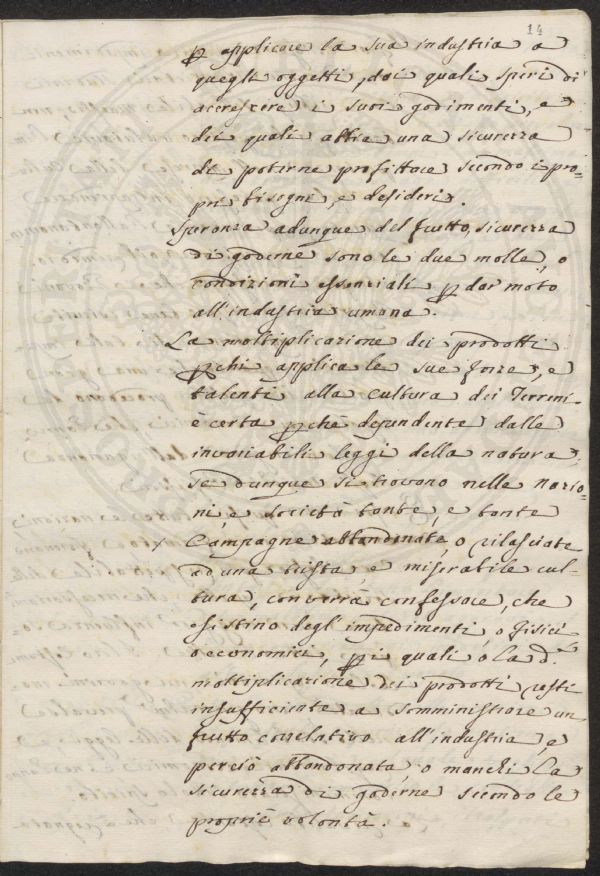 14
p applicare la sua industria a
quegli oggetti, dai quali speri di
accrescere i suoi godimenti, e
dei quali abbia una sicurezza
di poterne profittare secondo i pro-
pri bisogni, e desiderj.
Speranza adunque del frutto, sicurezza
di goderne sono le due molle, o
condizioni essenziali p dar moto
all'industria umana.
La moltiplicazione dei prodotti
p chi applica le sue forze, e
talenti alla cultura dei Terreni
è certa pchè dependente dalle
invariabili leggi della natura,
se dunque si trovono nelle nazio-
ni, e società tante, e tante
Campagne abbandonate, o rilasciate
ad una trista, e miserabile cul-
tura, converrà confessare, che
esistino degl'impedimenti, o fisici
o economici, p i quali o la d.
moltiplicazione dei prodotti resti
insufficiente a somministrare un
frutto correlativo all'industria, e
perciò abbandonata, o manchi la
sicurezza di goderne secondo le
proprie volontà.